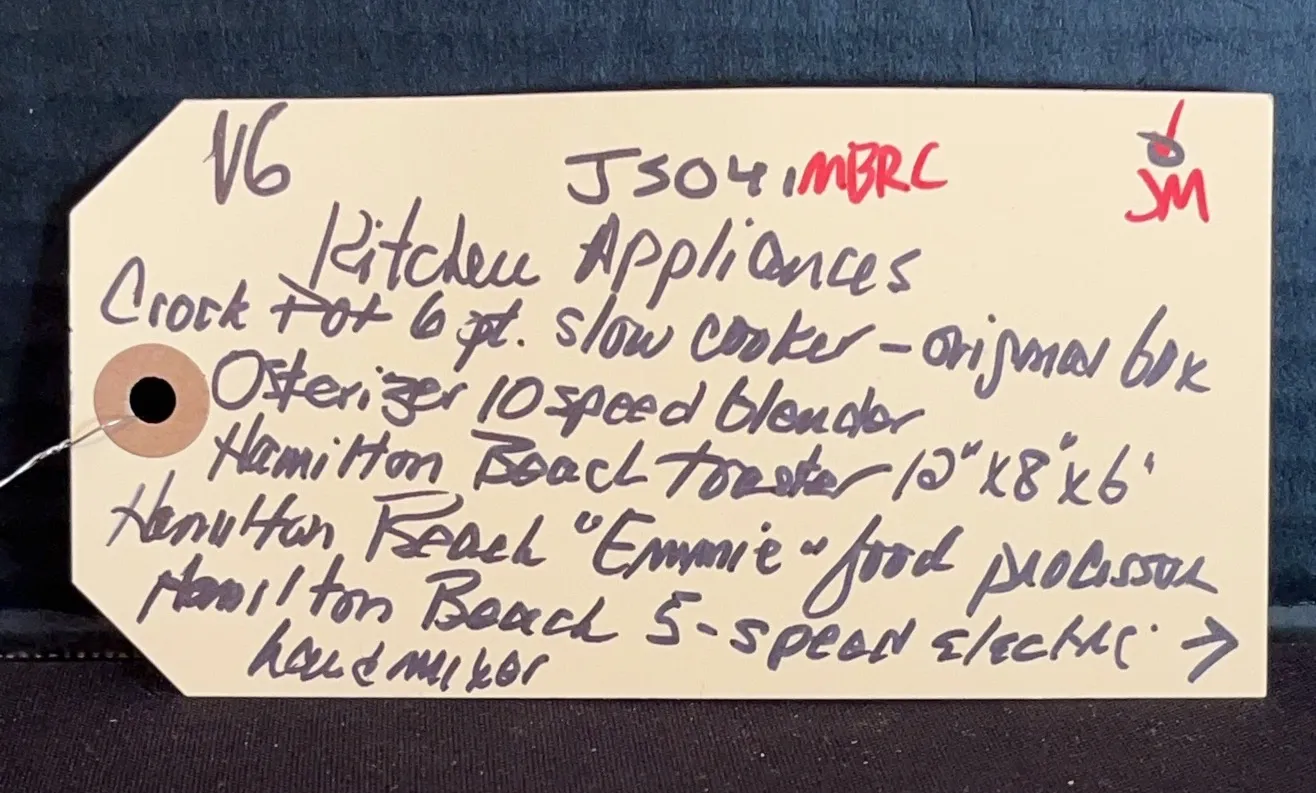 V6 JS041MBRC JM
Kitchen Appliances
Crock Pot 6 pt. slow cooker - original box
Osterizer 10 speed blender
Hamilton Beach toaster 12" x 8" x 6"
Hamilton Beach "Emmie" food processor
Hamilton Beach 5-speed electric →
hand mixer